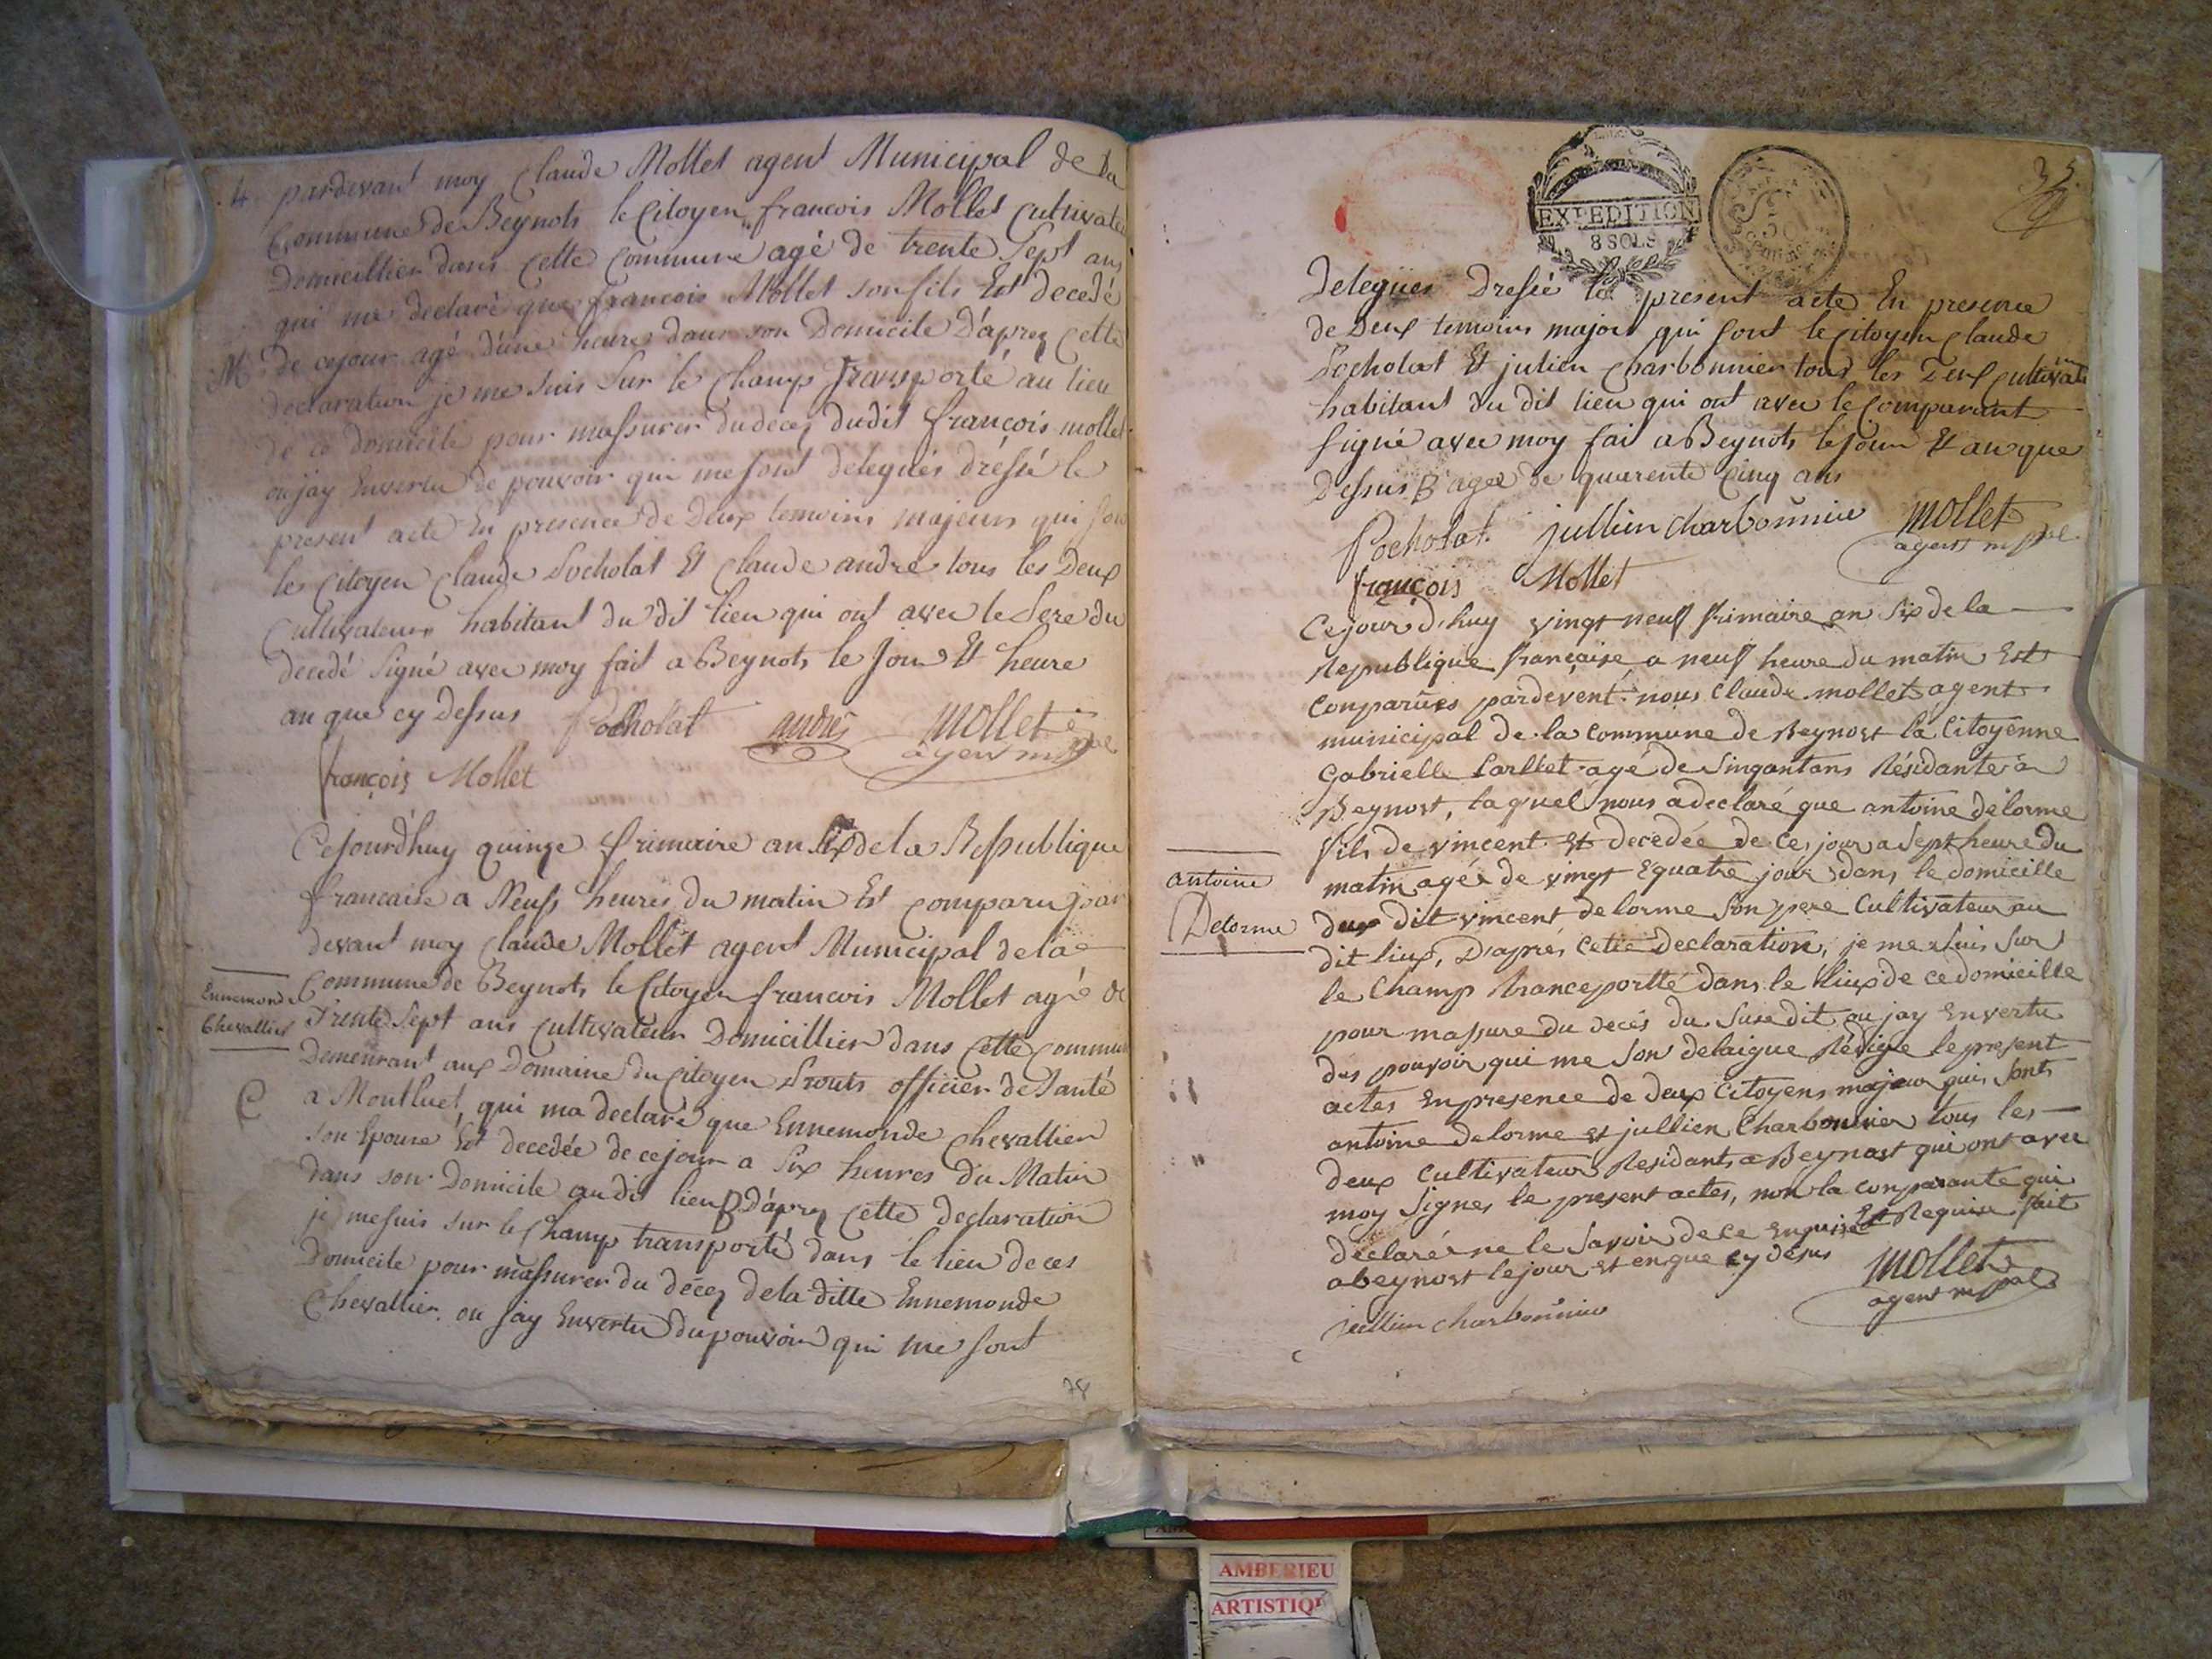 4. pardevant moy Claude Mollet agent Municipal de la
Commune de Beynots le Citoyen francois Mollet Cultivate
Domicillier dans Cette Commune agé de trente Sept ans
qui ma declaré que francois Mollet son fils Est decedé
M de cejour agé d'une heure dans son Domicile D'aprez Cette
declaration je me suis Sur le Champ Transporté au lieu
de ce domicile pour massurer du decez dudit françois mollet
ou jay Envertu de pouvoir qui me sont delegués dressé le
present acte En presence de Deux temoins majeurs qui son
le Citoyen Claude Pocholat Et Claude andre tous les Deux
Cultivateurs habitant du dit lieu qui ont avec le Pere du
decedé Signé avec moy fait a Beynots le Jour Et heure
an que cy Dessus Pocholat andré Mollet
agent mpal
françois Mollet
Cejourd'huy quinze frimaire an Six de la Republique
francaise a Neufs heures du matin Est comparu par
devant moy Claude Mollet agent Municipal de la
Commune de Beynots le Citoyen francois Mollet agé de
Ennemonde
Chevallier
Trente Sept ans Cultivateur Domicillier dans Cette Commun
Demeurant aux Domaine du Citoyen Prouts officier de Santé
C a Montluel, qui ma declaré que Ennemonde Chevallier
son Epouse Est decedée de cejour a Six heures du Matin
dans son Domicile au dit lieu B d'aprez Cette declaration
je me suis sur le Champ transporté dans le lieu de ces
Domicile pour massurer du décez de la ditte Ennemonde
Chevallier ou jay Envertu du pouvoir qui me sont
78
EXPEDITION
8 SOLS
35
Delegués Dressé le present acte En presence
de Deux temoins major qui sont le Citoyen Claude
Pocholat Et julien Charbonnier tous les Deux Cultivat
habitant du dit lieu qui ont avec le Comparant
signé avec moy fait a Beynots le jour Et an que
Dessus B agée de quarente Cinq ans
Pocholat jullien charbonnier Mollet
agent mpal
françois Mollet
Cejourd'huy vingt neuf frimaire an Six de la
Republique française a neuf heure du matin Est
conparües pardevent nous Claude mollet agent
municipal de la Commune de Beynost la Citoyenne
Gabrielle Carllet agé de Sinqantans Résidante a
Beynost, laquel nous a declaré que antoine delorme
fils de vincent Et decedée de Ces jour a Sept heure du
antoine
Delorme
matin agée de vingt Equatre jour dans le domicille
dux dit vincent delorme Son pere Cultivateur au
dit liux, D'aprés Cette declaration, je me suis Sur
le Champ tranceportté dans le liux de ce domicille
pour massure du decés du Suse dit ou jay Envertu
des pouvoir qui me Son delaigue Rédige le present
actes En presence de deux Citoyens majeur qui Sont
antoine delorme et jullien Charbonnier tous les
deux Cultivateur Residants a Beynost qui ont avec
moy Signes le present actes, non la conparante qui
declaré ne le Savoir de ce Enquise Et Requise fait
abeynost le jour et en que cy desus Mollet
agent mpal
jullien charbonnier
AMBERIEU
ARTISTIQU